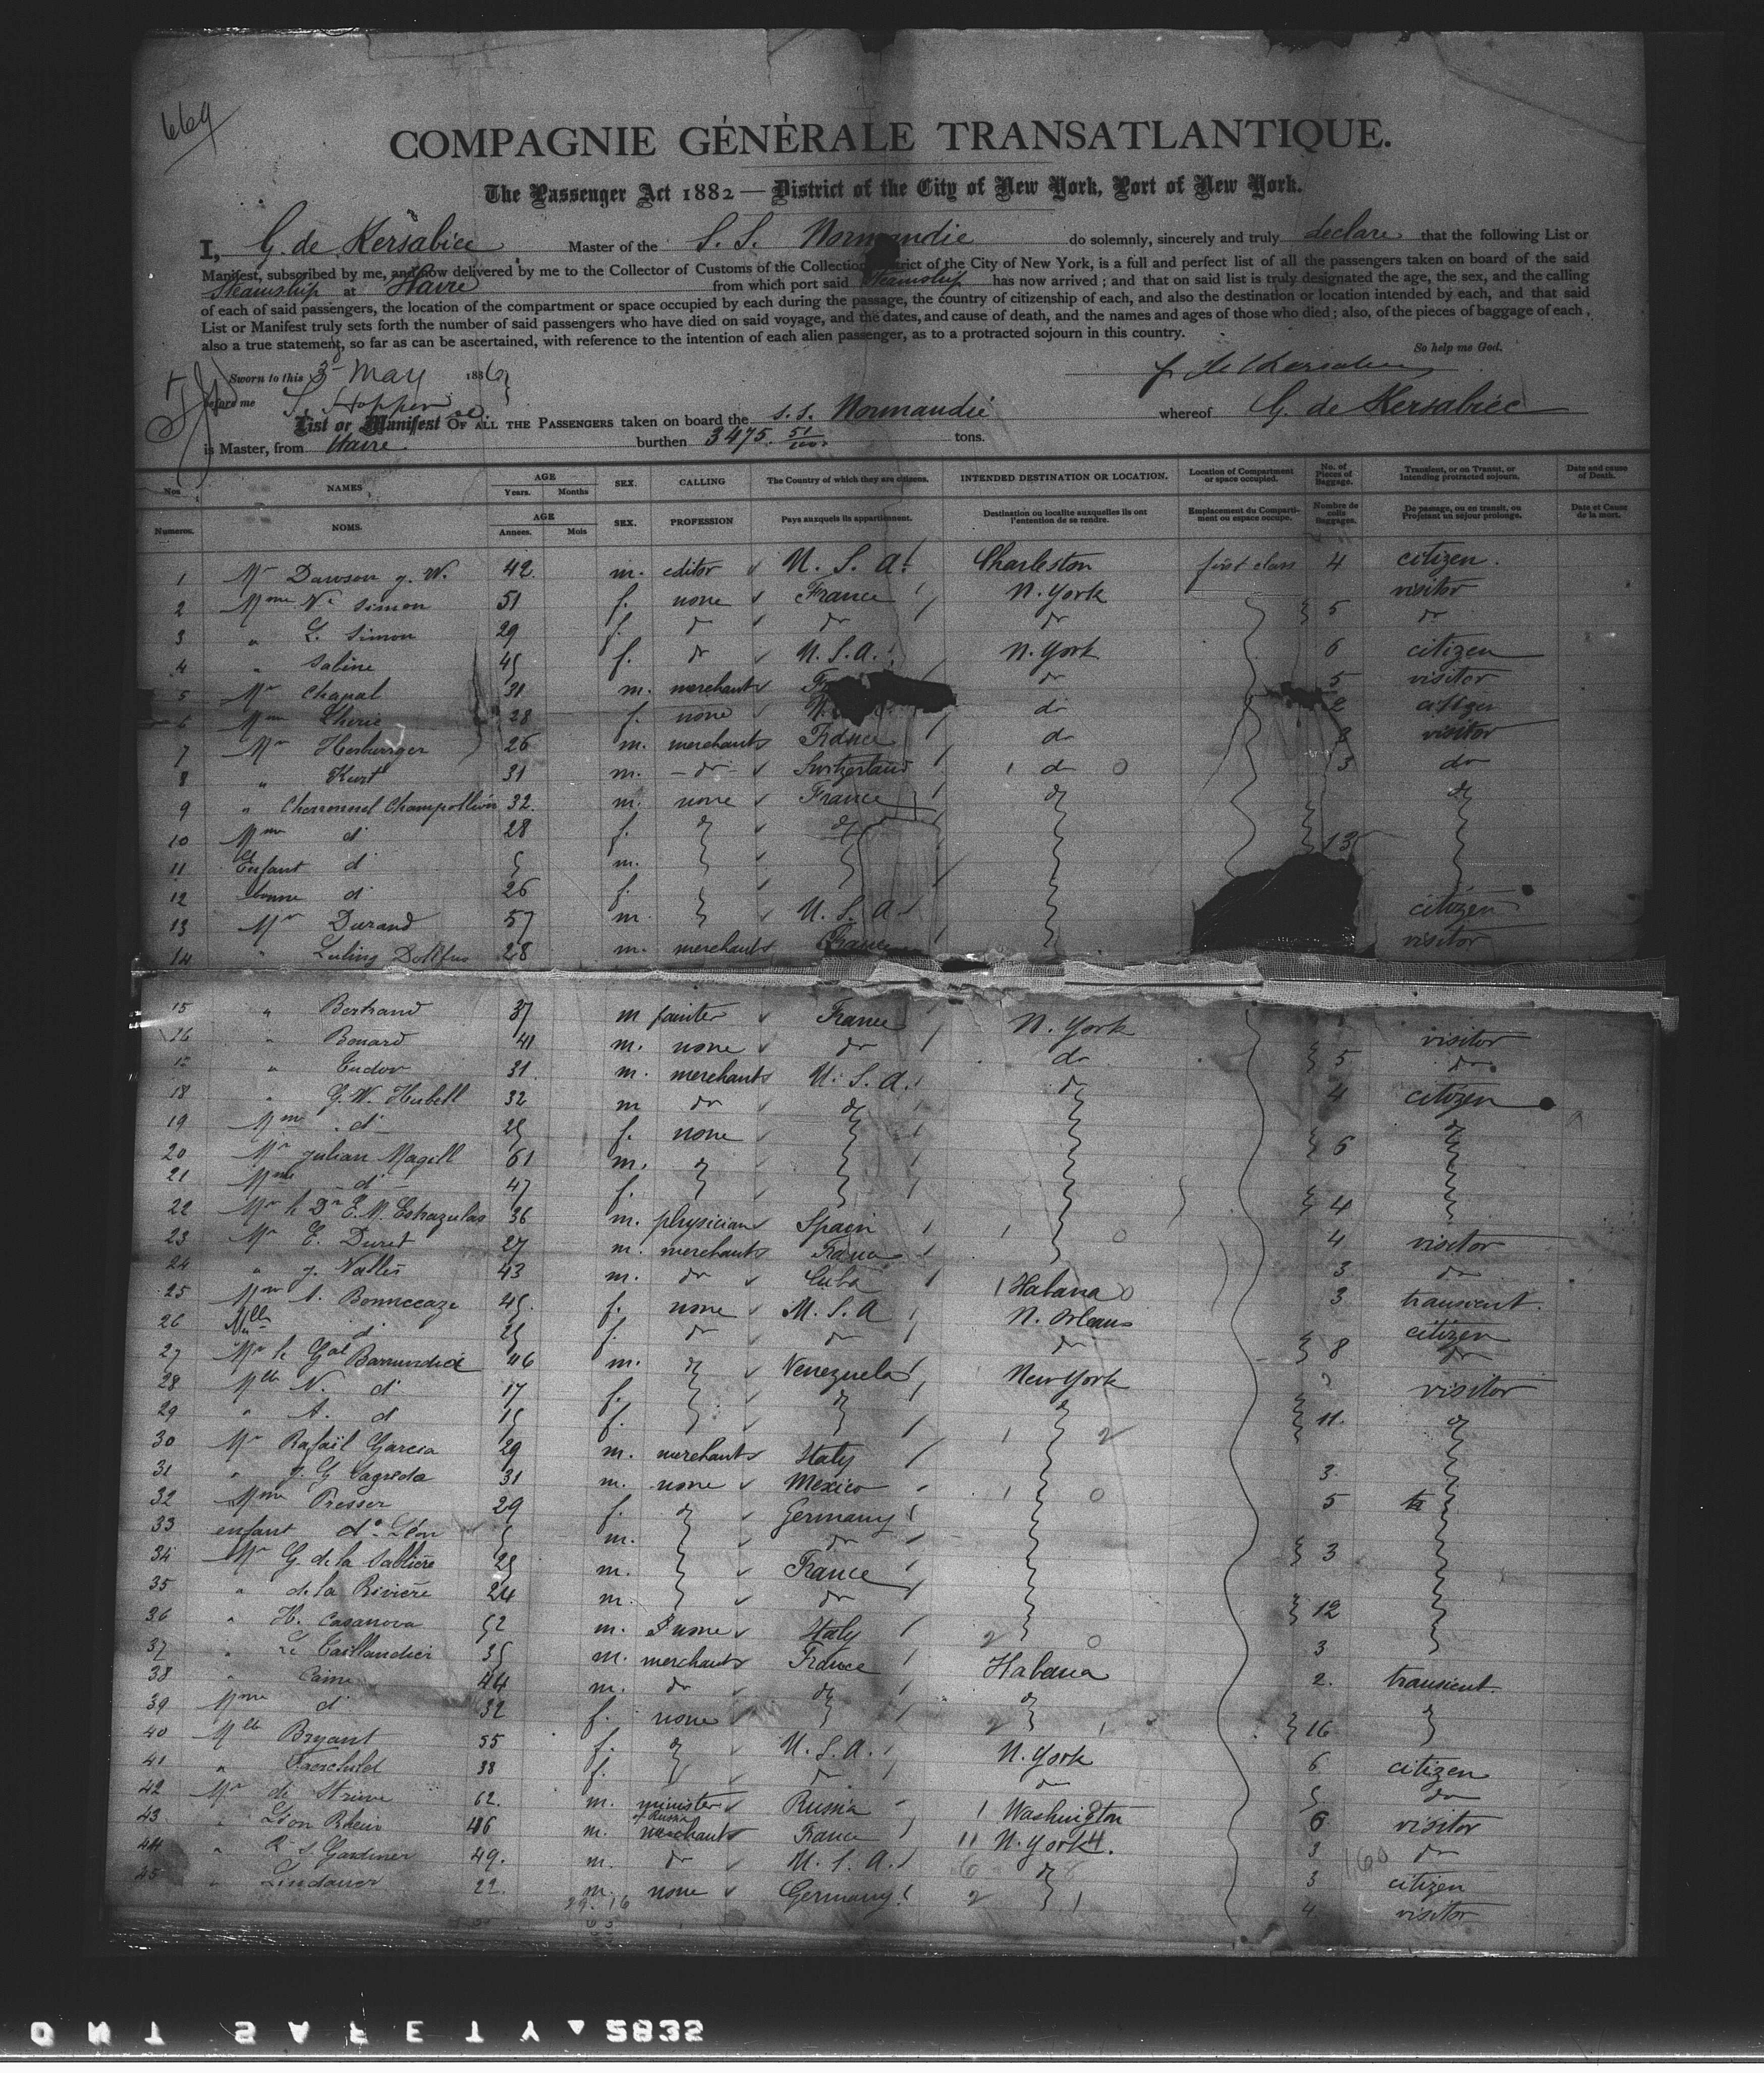 669
COMPAGNIE GÉNÉRALE TRANSATLANTIQUE.
The Passenger Act 1882 — District of the City of New York, Port of New York.
I, G. de Kersabiec Master of the S. S. Normandie do solemnly, sincerely and truly declare that the following List or
Manifest, subscribed by me, and now delivered by me to the Collector of Customs of the Collection District of the City of New York, is a full and perfect list of all the passengers taken on board of the said
Steamship at Havre from which port said Steamship has now arrived; and that on said list is truly designated the age, the sex, and the calling
of each of said passengers, the location of the compartment or space occupied by each during the passage, the country of citizenship of each, and also the destination or location intended by each, and that said
List or Manifest truly sets forth the number of said passengers who have died on said voyage, and the dates, and cause of death, and the names and ages of those who died; also, of the pieces of baggage of each,
also a true statement, so far as can be ascertained, with reference to the intention of each alien passenger, as to a protracted sojourn in this country.
So help me God.
Sworn to this 3 May 1886
before me
List or Manifest OF ALL THE PASSENGERS taken on board the S. S. Normandie whereof G. de Kersabiec
is Master, from Havre burthen 3475 51/100 tons.
Nos NAMES AGE Years. Months SEX. CALLING The Country of which they are citizens. INTENDED DESTINATION OR LOCATION. Location of Compartment or space occupied. No. of Pieces of Baggage. Transient, or on Transit, or Intending protracted sojourn. Date and cause of Death.
Numeros. NOMS. AGE Annees. Mois SEX. PROFESSION Pays auxquels ils appartiennent. Destination ou localite auxquelles ils ont l'entention de se rendre. Emplacement du Compartiment ou espace occupe. Nombre de colis Baggages. De passage, ou en transit, ou Projetant un sejour prolonge. Date et Cause de la mort.
1 Mr Dawson J. W. 42 m. editor U. S. A. Charleston first class 4 citizen.
2 Mme Simon 51 f. none France N. York visitor
3 " L. Simon 29 f. do do do 5 do
4 " Sabine 45 f. do U. S. A. N. York 6 citizen
5 Mr Chapal 31 m. merchant do 5 visitor
6 Mme 28 f. none do 2 citizen
7 Mr 26 m. merchant France do visitor
8 " Kurt 31 m. do Switzerland do 3 do
9 " Champollion 32. m. none France do do
10 Mme d 28 f. do do 13
11 Enfant d 5 m.
12 bonne d 26 f.
13 Mr Durand 57 m. U. S. A. citizen
14 " Luling Dollfus 28 m. merchant France visitor
15 " Bertrand 37 m painter France N. York visitor
16 " Bonard 41 m. none do do 5 do
17 " 31 m. merchant U. S. A. do 4 citizen
18 " G. W. Hubell 32 m do do
19 Mme d 25 f. none 6
20 Mr Julian Magill 61 m. do
21 Mme d 47 f. 4
22 Mr le Dr E. M. Estrazulas 36 m. physician Spain 4 visitor
23 Mr E. Duret 27 m. merchant France 3 do
24 " J. Valles 43 m. do Cuba Habana 3 transient.
25 Mme A. Bonnecaze 45 f. none U. S. A N. Orleans citizen
26 Mlle d 25 f. do do do 8 do
27 Mr le Gal Barrundia 46 m. do Venezuela New York visitor
28 Mlle N. d 17 f. do do 11. do
29 " A. d 15 f.
30 Mr Rafaël Garcia 29 m. merchant Italy 3
31 " J. G. Sagreda 31 m. none Mexico 5
32 Mme Presser 29 f. do Germany
33 enfant do Léon 5 m. do 3
34 Mr G. de la Sablière 25 m. France
35 " de la Rivière 24 m. do 12
36 " H. Casanova 52 m. none Italy 3
37 " Le Taillandier 35 m. merchant France Habana 2. transient.
38 " Caime 44 m. do do do
39 Mme d 32 f. none 16
40 Mlle Bryant 55 f. do U. S. A. N. York 6 citizen
41 " Faerchild 38 f. do do 5 do
42 Mr de Struve 62. m. minister of Russia Russia Washington 6 visitor
43 " Léon Rheis 46 m. merchant France N. York 3 do
44 " R. S. Gardiner 49. m. do U. S. A. do 3 citizen
45 " Lindauer 22. m. none Germany 4 visitor
ONT SAFETY 2835